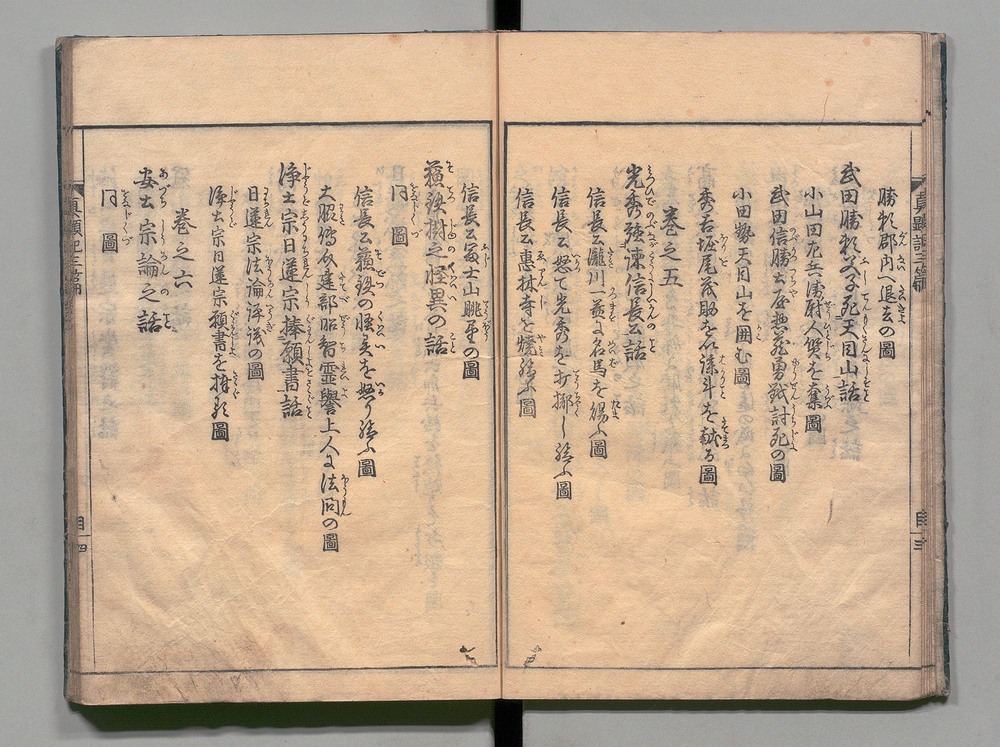 勝頼郡内へ退去の圖
武田勝頼父子死天目山話
小山田左兵衛尉人質を奪圖
武田信勝土屋惣蔵勇戦討死の圖
小田勢天目山を囲む圖
秀吉堀尾茂助を以謀斗を献る圖
巻之五
光秀強諫信長公話
信長公瀧川一益に名馬を賜ふ圖
信長公怒て光秀を打擲し給ふ圖
信長公惠林寺を焼給ふ圖
信長公富士山眺望の圖
蘓鉄樹之怪異の話
同圖
信長公蘓鉄の怪異を怒り給ふ圖
大脇傳助建部昭智靈譽上人に法問の圖
浄土宗日蓮宗捧願書話
日蓮宗法論評議の圖
浄土宗日蓮宗願書を捧る圖
巻之六
安土宗論之話
同圖
真顕記三篇
目
四